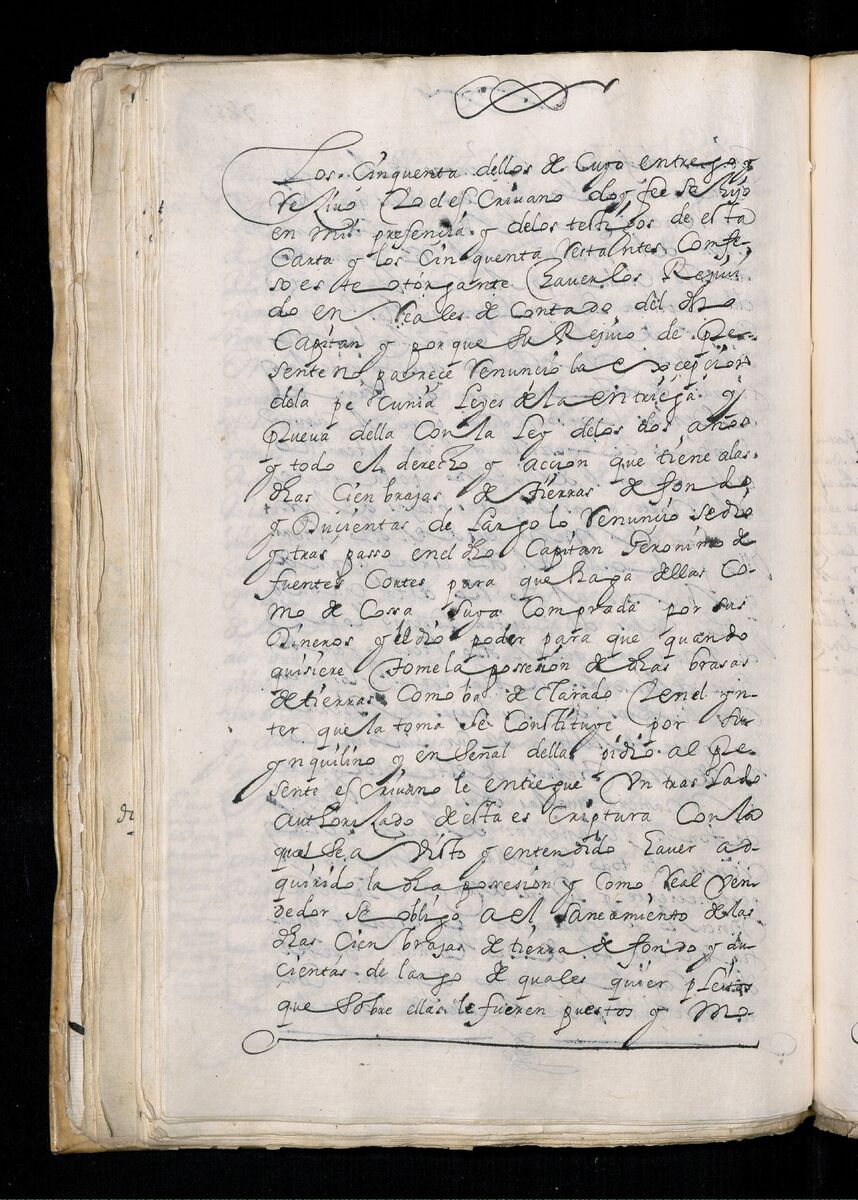 Los Cinquenta dellos de Cuyo entrego y
Reciuo Yo el esCriuano doy fee se hizo
en mi presencia y delos testigos de esta
Carta y los Cinquenta restantes Comfe-
so es te otorgante hauerlos Reziui
do en reales de Contado del dho
Capitan y por que su Reziuo de Pre-
sente no parece renuncio la excepcion
dela pecunia Leyes de la entriega y
Prueua della Con la Ley delos dos años
y todo el derecho y accion que tiene alas
dhas Cien brazas de tierras de fondo
y Ducientas de Largo lo renuncio sedio
y tras passo enel dho Capitan Geronimo de
fuentes Cortes para que haga dellas Co-
mo de Cossa suya Comprada por sus
Dineros y le dio poder para que quando
quisiere tome la possesion de dhas brasas
de tierras Como ba de clarado y enel yn-
ter que la toma se Constituye por su
ynquilino y en señal della pidio al Pre-
sente esCriuano le entregue Vn tras lado
authorizado de esta es Criptura Con la
qual se a visto y entendido hauer ad-
quirido la dha possesion y Como real Ven-
dedor se obligo a el saneamiento de las
dhas Cien brazas de tierra de fondo y du-
cientas de largo de quales quier pleitos
que sobre ellas le fueren puestos y mo-